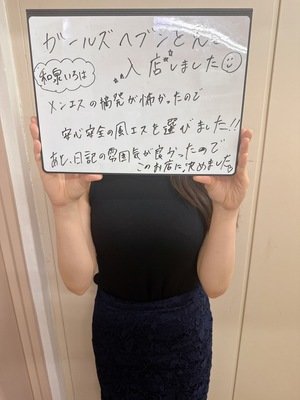 ガールズヘブンとんこ
和泉いろは
入店しました
メンエスの摘発が怖かったので
安心安全の風エスを選びました!!
あと、日記の雰囲気が良かったので
このお店に決めました